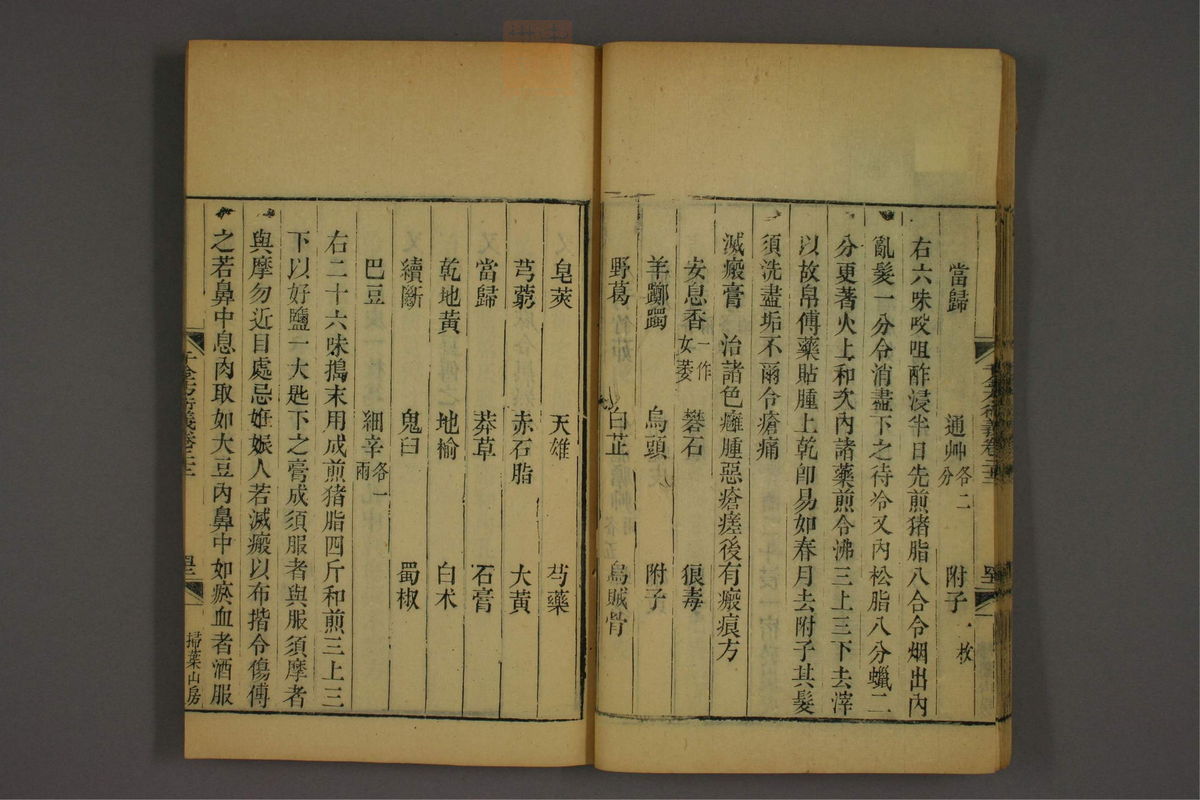 當歸　通艸各二分　附子一枚
右六味㕮咀酢浸半日先煎猪脂八合令烟出內
亂髮一分令消盡下之待冷又內松脂八分蠟二
分更著火上和次內諸藥煎令沸三上三下去滓
以故帛傅藥貼腫上乾卽易如春月去附子其髮
須洗盡垢不爾令瘡痛
滅瘢膏　治諸色癰腫惡瘡瘥後有瘢痕方
安息香一作女萎　礬石　狼毒
羊躑躅　烏頭　附子
野葛　白芷　烏賊骨
皂莢　天雄　芍藥
芎藭　赤石脂　大黃
當歸　莽草　石膏
乾地黃　地榆　白术
續斷　鬼臼　蜀椒
巴豆　細辛各一兩
右二十六味搗末用成煎猪脂四斤和煎三上三
下以好鹽一大匙下之膏成須服者與服須摩者
與摩勿近目處忌姙娠人若滅瘢以布揩令傷傅
之若鼻中息肉取如大豆內鼻中如瘀血者酒服
掃葉山房